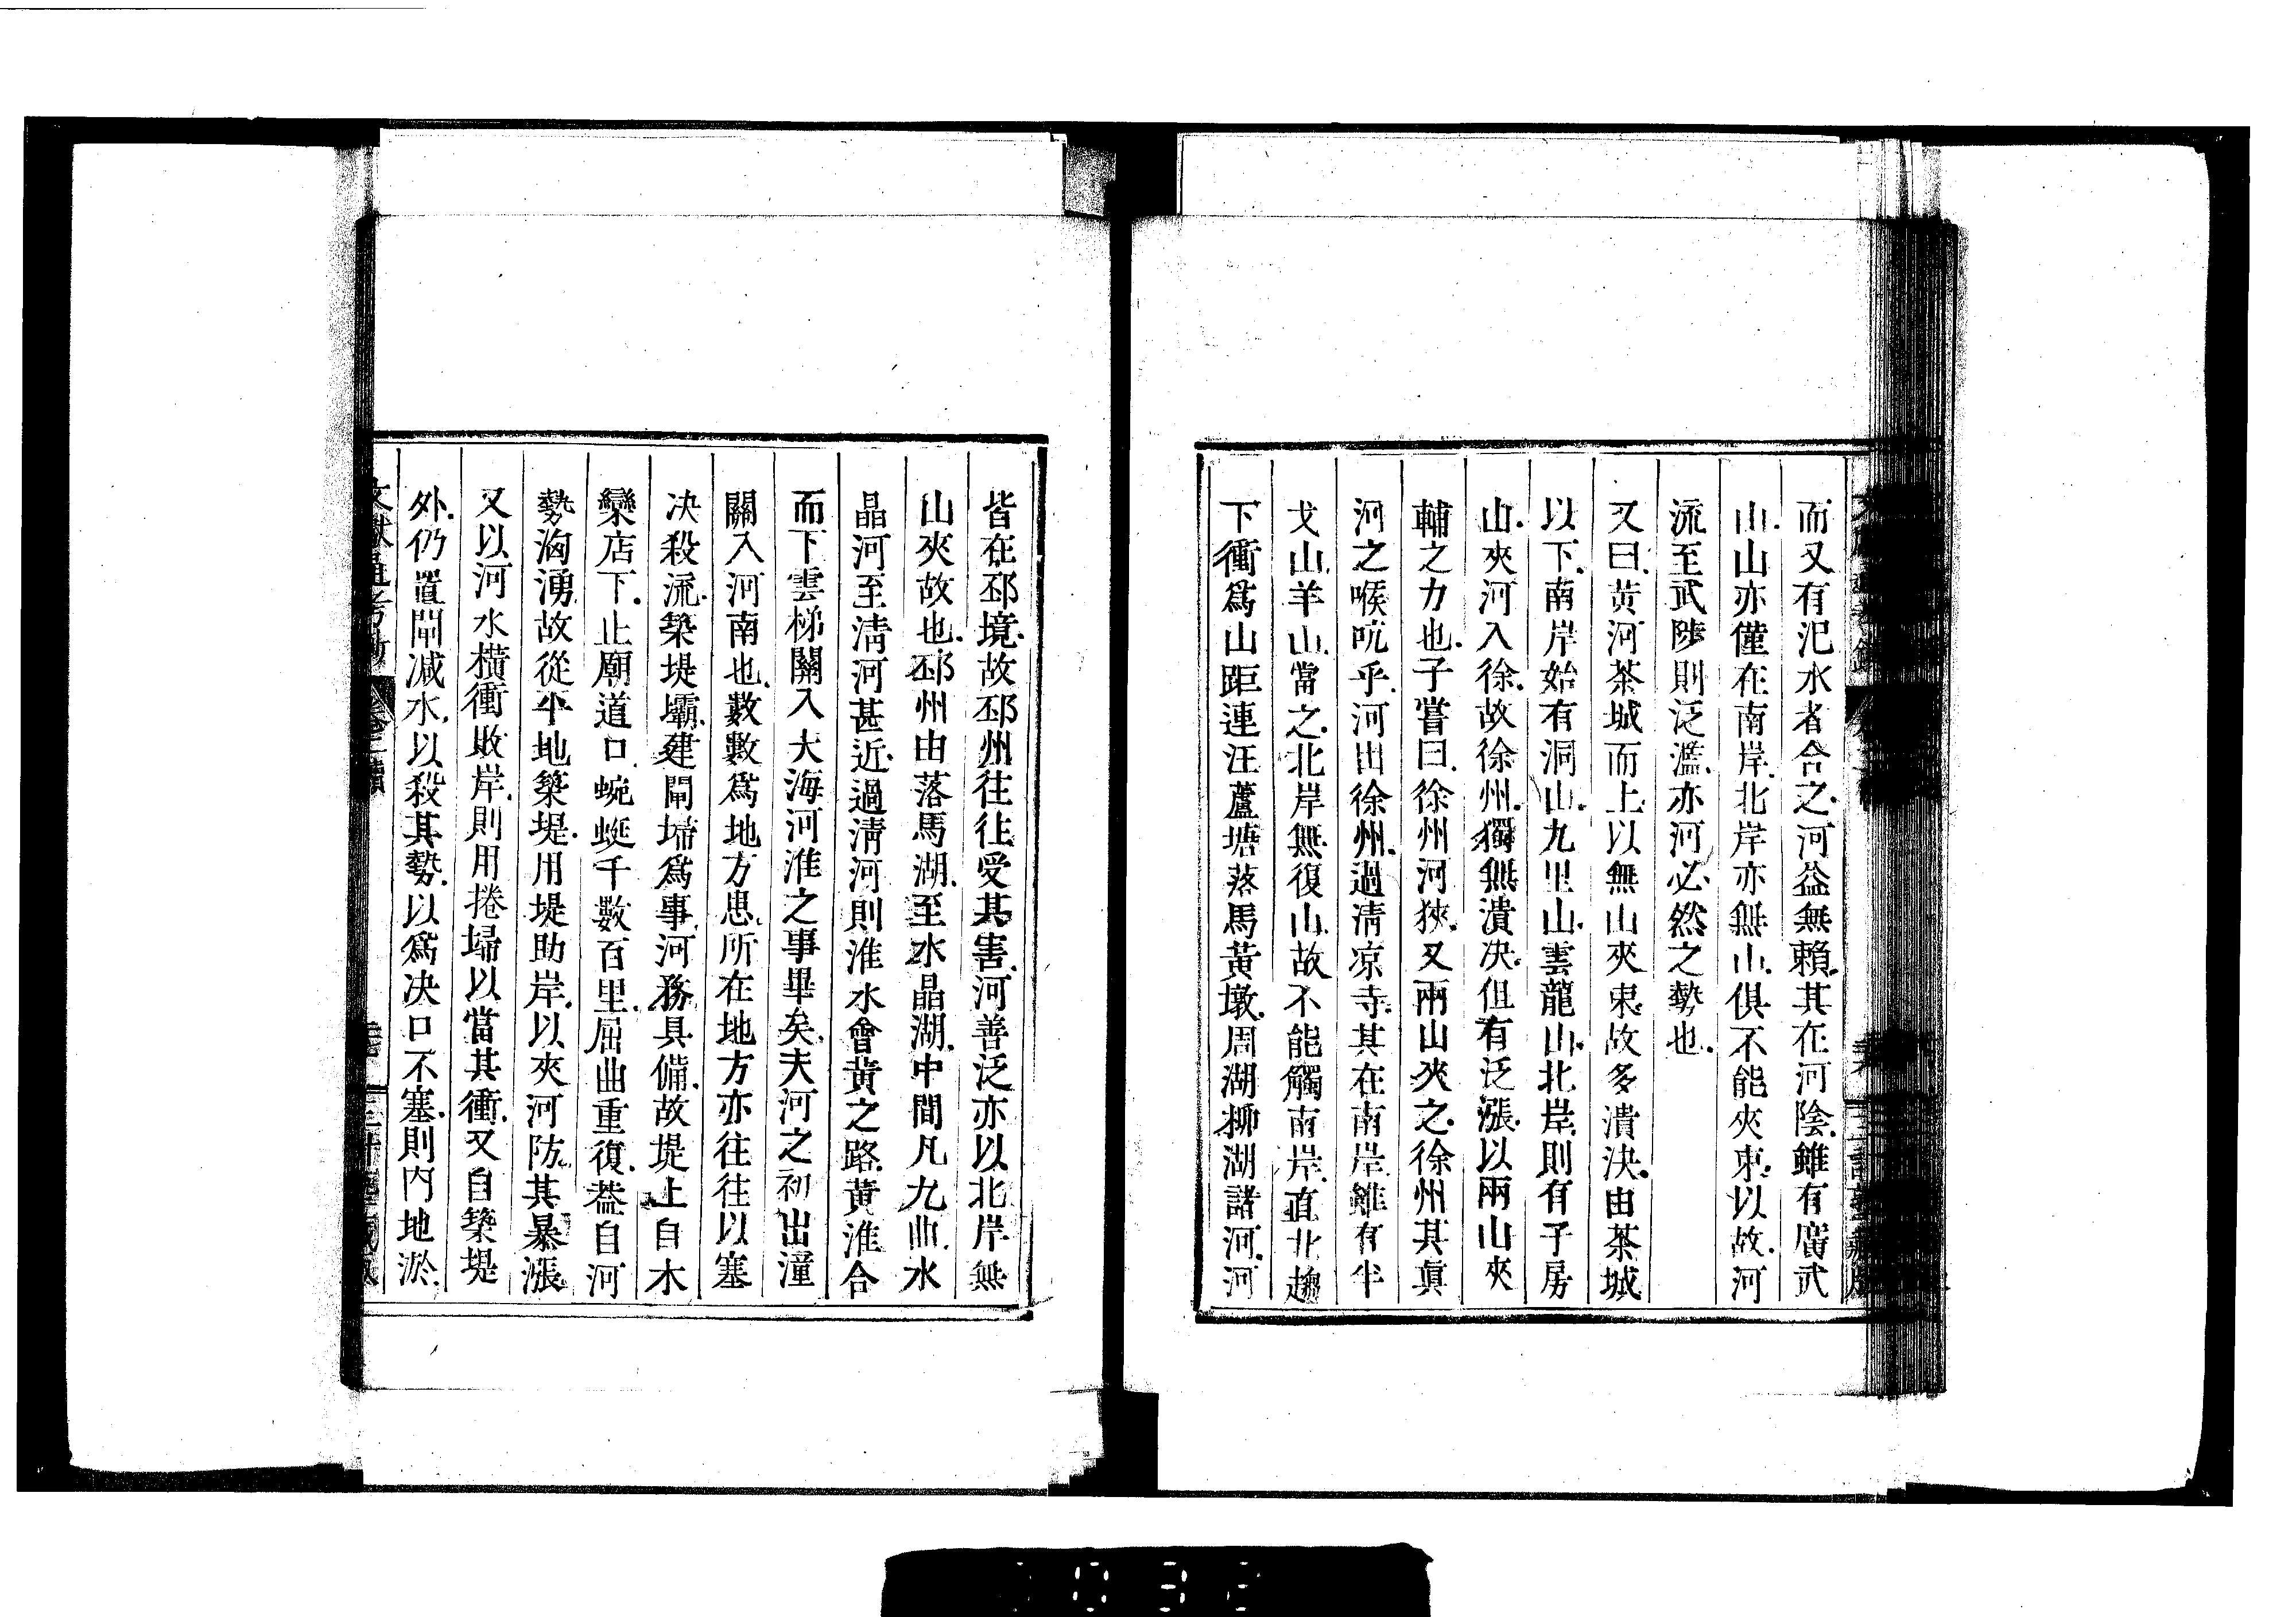 而又有汜水者合之河益無賴其在河陰雖有廣武
山山亦僅在南岸北岸亦無山俱不能夾束以故河
流至武陟則泛濫亦河必然之勢也
又曰黃河茶城而上以無山夾束故多潰決由茶城
以下南岸始有洞山九里山雲龍山北岸則有子房
山夾河入徐故徐州獨無潰決但有泛漲以兩山夾
輔之力也子嘗曰徐州河狹又兩山夾之徐州其眞
河之喉吭乎河出徐州過清凉寺其在南岸雖有半
戈山羊山當之北岸無復山故不能觸南岸直北趨
下衝爲山距連汪蘆塘落馬黃墩周湖柳湖諸河河
皆在邳境故邳州往往受其害河善泛亦以北岸無
山夾故也邳州由落馬湖至水晶湖中間凡九曲水
晶河至清河甚近過清河則淮水會黃之路黃淮合
而下雲梯關入大海河淮之事畢矣夫河之初出潼
關入河南也數數爲地方患所在地方亦往往以塞
决殺流築堤壩建閘埽爲事河務具備故堤上自木
欒店下止廟道口蜿蜒千數百里屈曲重復葢自河
勢洶湧故從平地築堤用堤助岸以夾河防其暴漲
又以河水橫衝敗岸則用捲埽以當其衝又自築堤
外仍置閘減水以殺其勢以爲决口不塞則內地淤
文獻通考